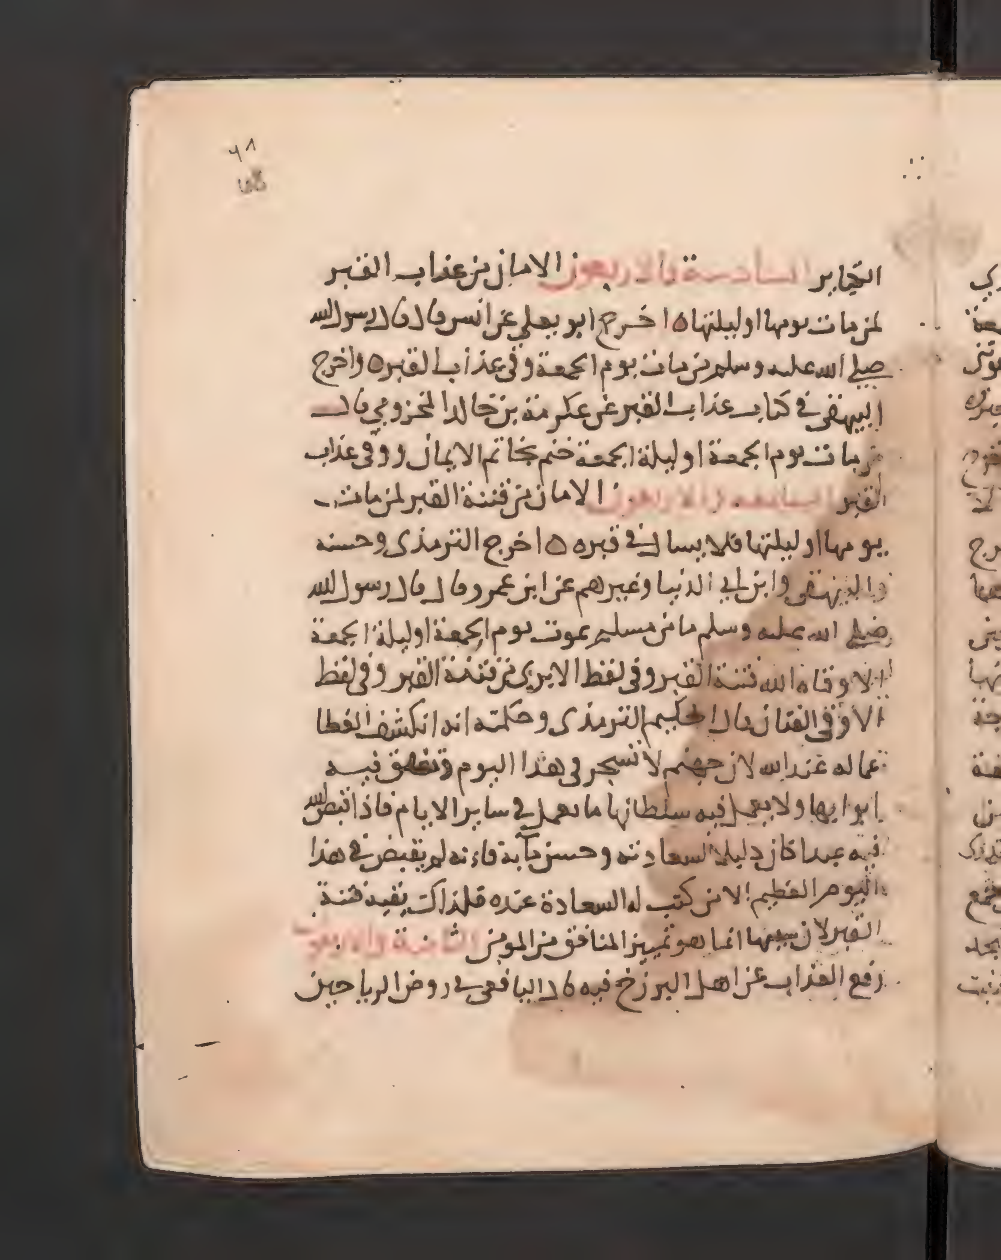 ٦٨
الكباير السادسة والاربعون الامان من عذاب القبر
لمن مات يومها او ليلتها ه اخرج ابو يعلي عن انس قال قال رسول الله
صلي الله عليه وسلم من مات يوم الجمعة وقي عذاب القبر ه واخرج
البيهقي في كتاب عذاب القبر عن عكرمة بن خالد المخزومي قال
من مات يوم الجمعة او ليلة الجمعة ختم بخاتم الايمان ووقي عذاب
القبر السابعة والاربعون الامان من فتنة القبر لمن مات
يومها او ليلتها فلا يسال في قبره ه اخرج الترمذي وحسنه
والبيهقي وابن ابي الدنيا وغيرهم عن ابن عمرو قال قال رسول الله
صلي الله عليه وسلم ما من مسلم يموت يوم الجمعة او ليلة الجمعة
الا وقاه الله فتنة القبر وفي لفظ الا بري من فتنة القبر وفي لفظ
الا وقي الفتان قال الحكيم الترمذي وحكمته انه انكشف الغطا
عما له عند الله لان جهنم لا تسجر في هذا اليوم وتغلق فيه
ابوابها ولا يعمل فيه سلطانها ما يعمل في ساير الايام فاذا قبض الله
فيه عبدا كان دليلا لسعادته وحسن مآبه فانه لم يقبض في هذا
اليوم العظيم الا من كتب له السعادة عنده فلذلك يقيه فتنة
القبر لان سببها انما هو تمييز المنافق من المومن الثامنة والاربعون
رفع العذاب عن اهل البرزخ فيه قال اليافعي في روض الرياحين